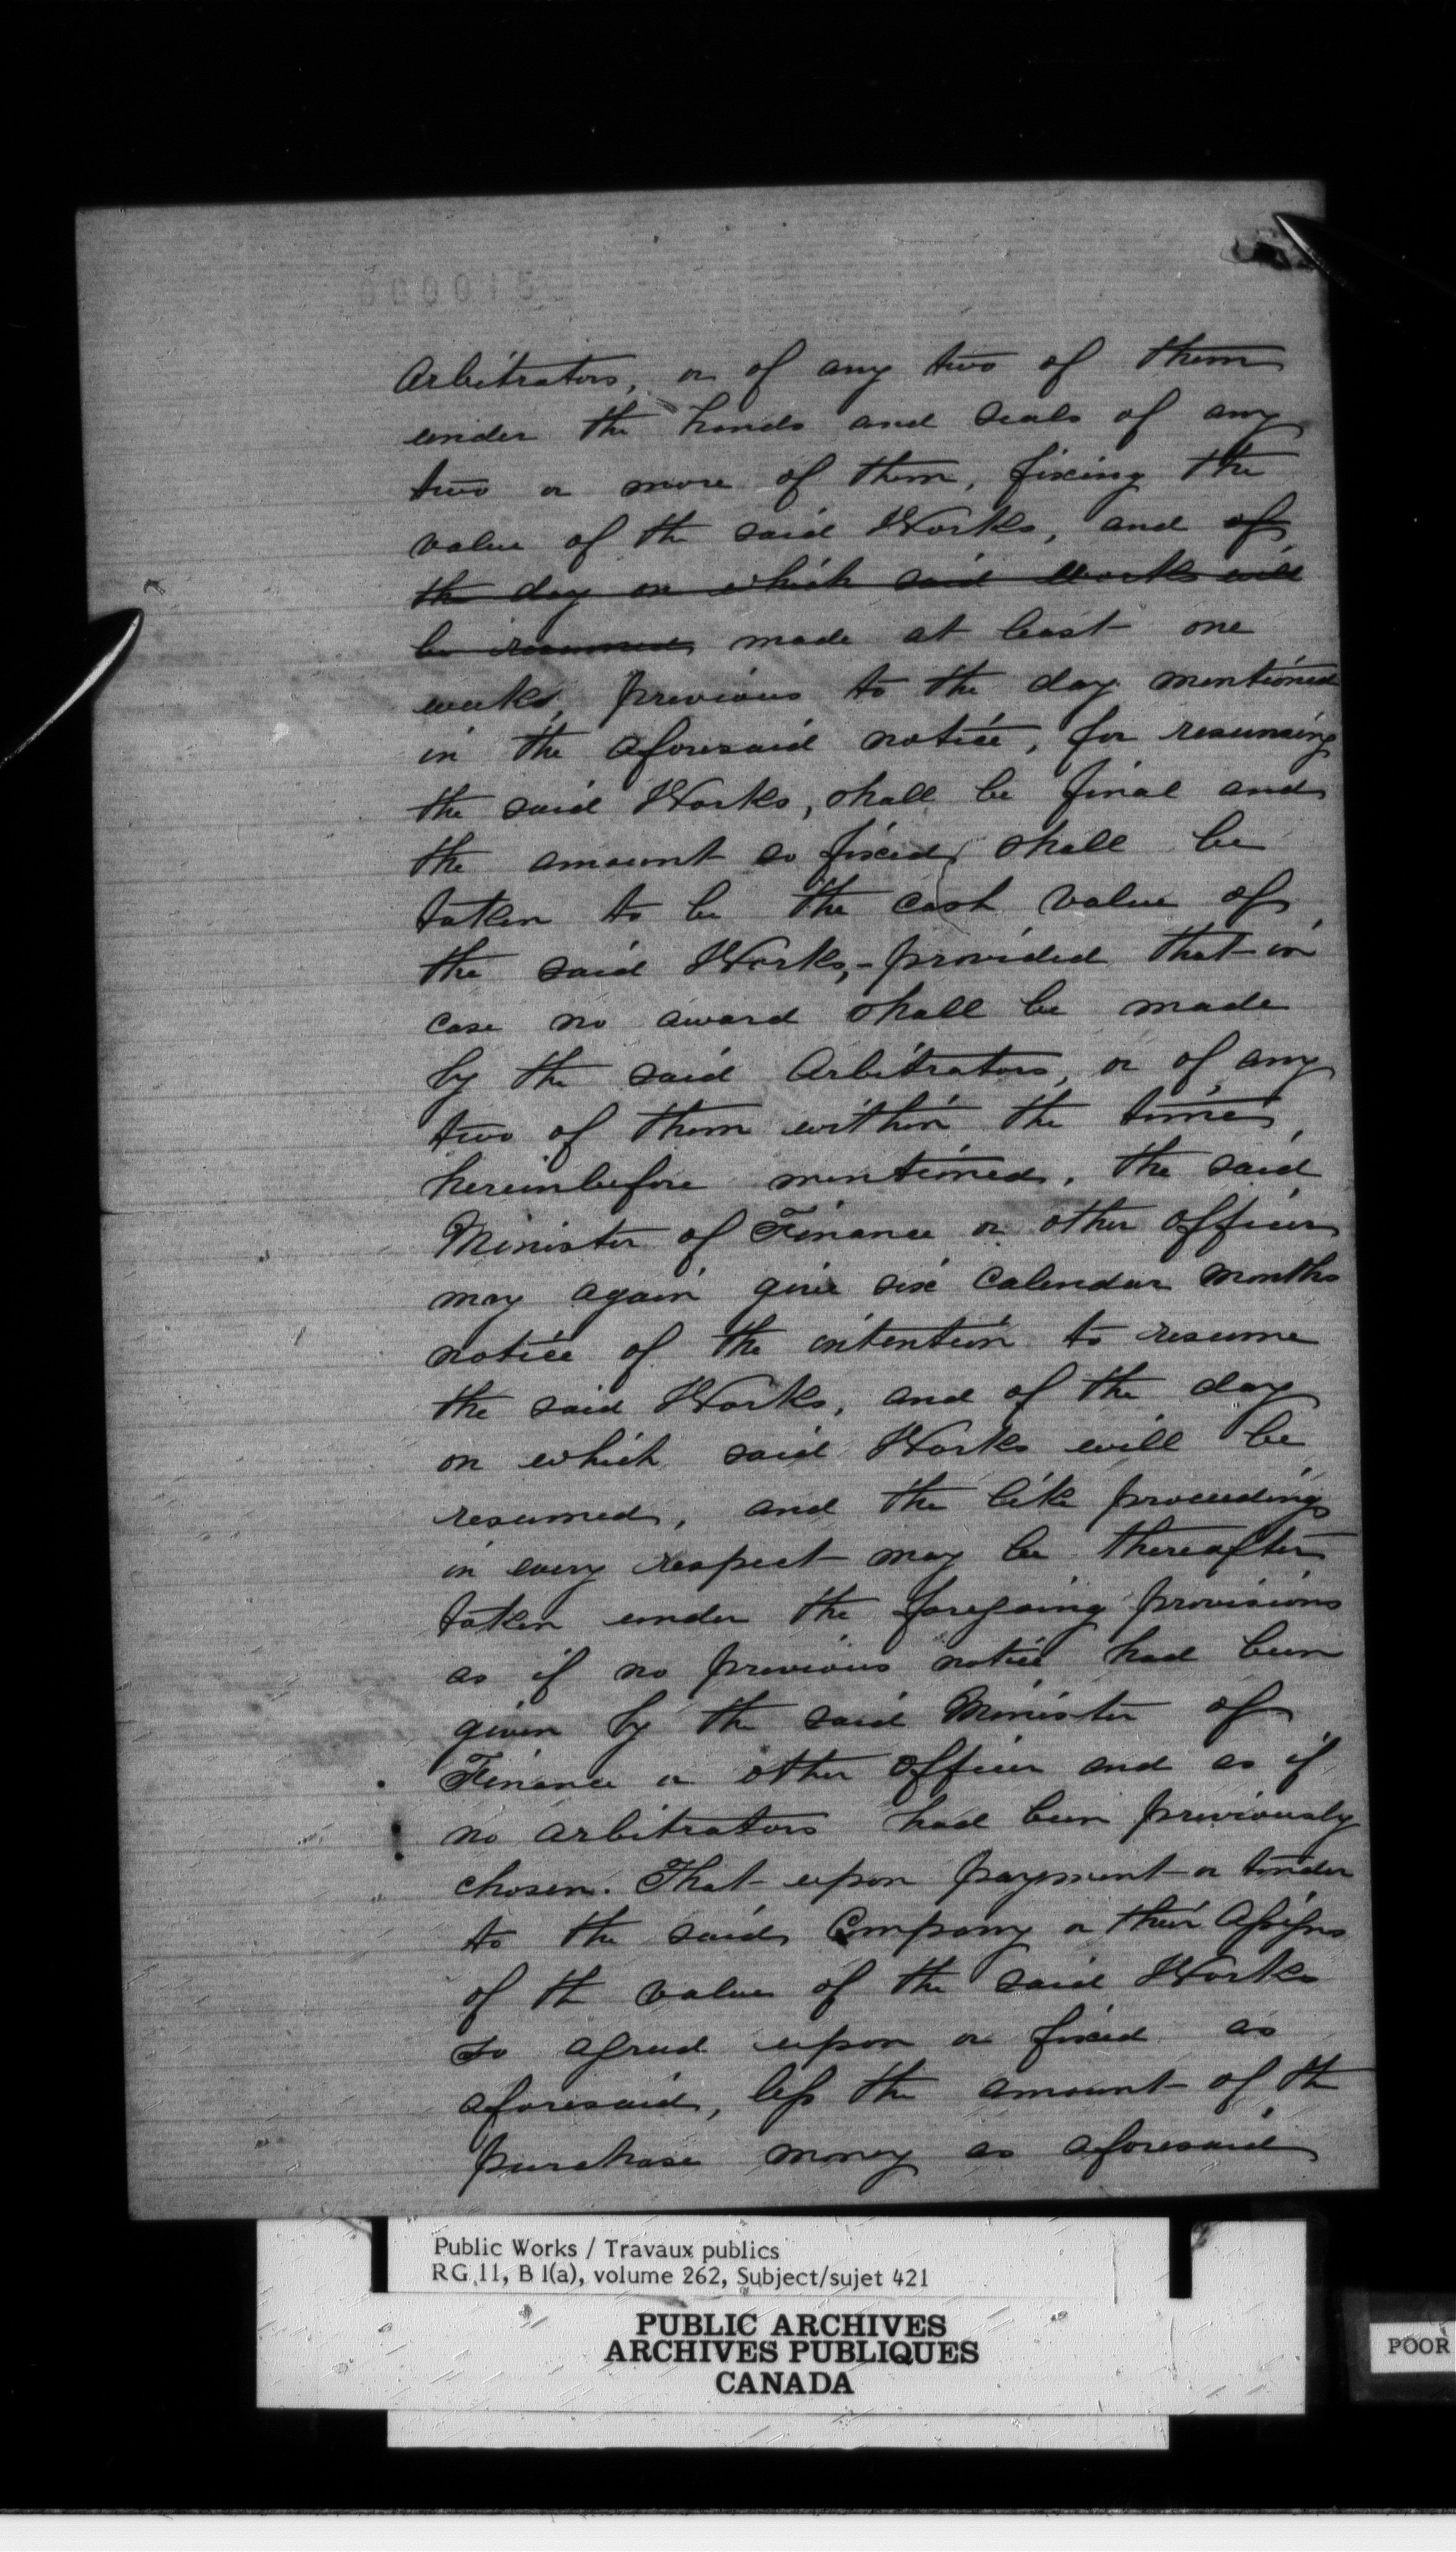 000015
Arbitrators, or of any two of them
under the hands and seals of any
two or more of them, fixing the
value of the said Works, and of
the day on which said Works will
be resumed, made at least one
week, previous to the day mentioned
in the aforesaid notice, for resuming
the said Works, shall be final and
the amount so fixed, shall be
taken to be the cash value of
the said Works,- provided that in
case no award shall be made
by the said Arbitrators, or of any
two of them within the time,
hereinbefore mentioned, the said
Minister of Finance or other officer
may again give six Calendar months
notice of the intention to resume
the said Works, and of the day
on which said Works will be
resumed, and the like proceedings
in every respect may be thereafter
taken under the foregoing provisions
as if no previous notice had been
given by the said Minister of
Finance or other officer and as if
no arbitrators had been previously
chosen. That upon payment or tender
to the said Company or their Assigns
of the value of the said Works
so agreed upon or fixed as
aforesaid, less the amount of the
purchase money as aforesaid
Public Works / Travaux publics
RG 11, B 1(a), volume 262, Subject/sujet 421
PUBLIC ARCHIVES
ARCHIVES PUBLIQUES
CANADA
POOR